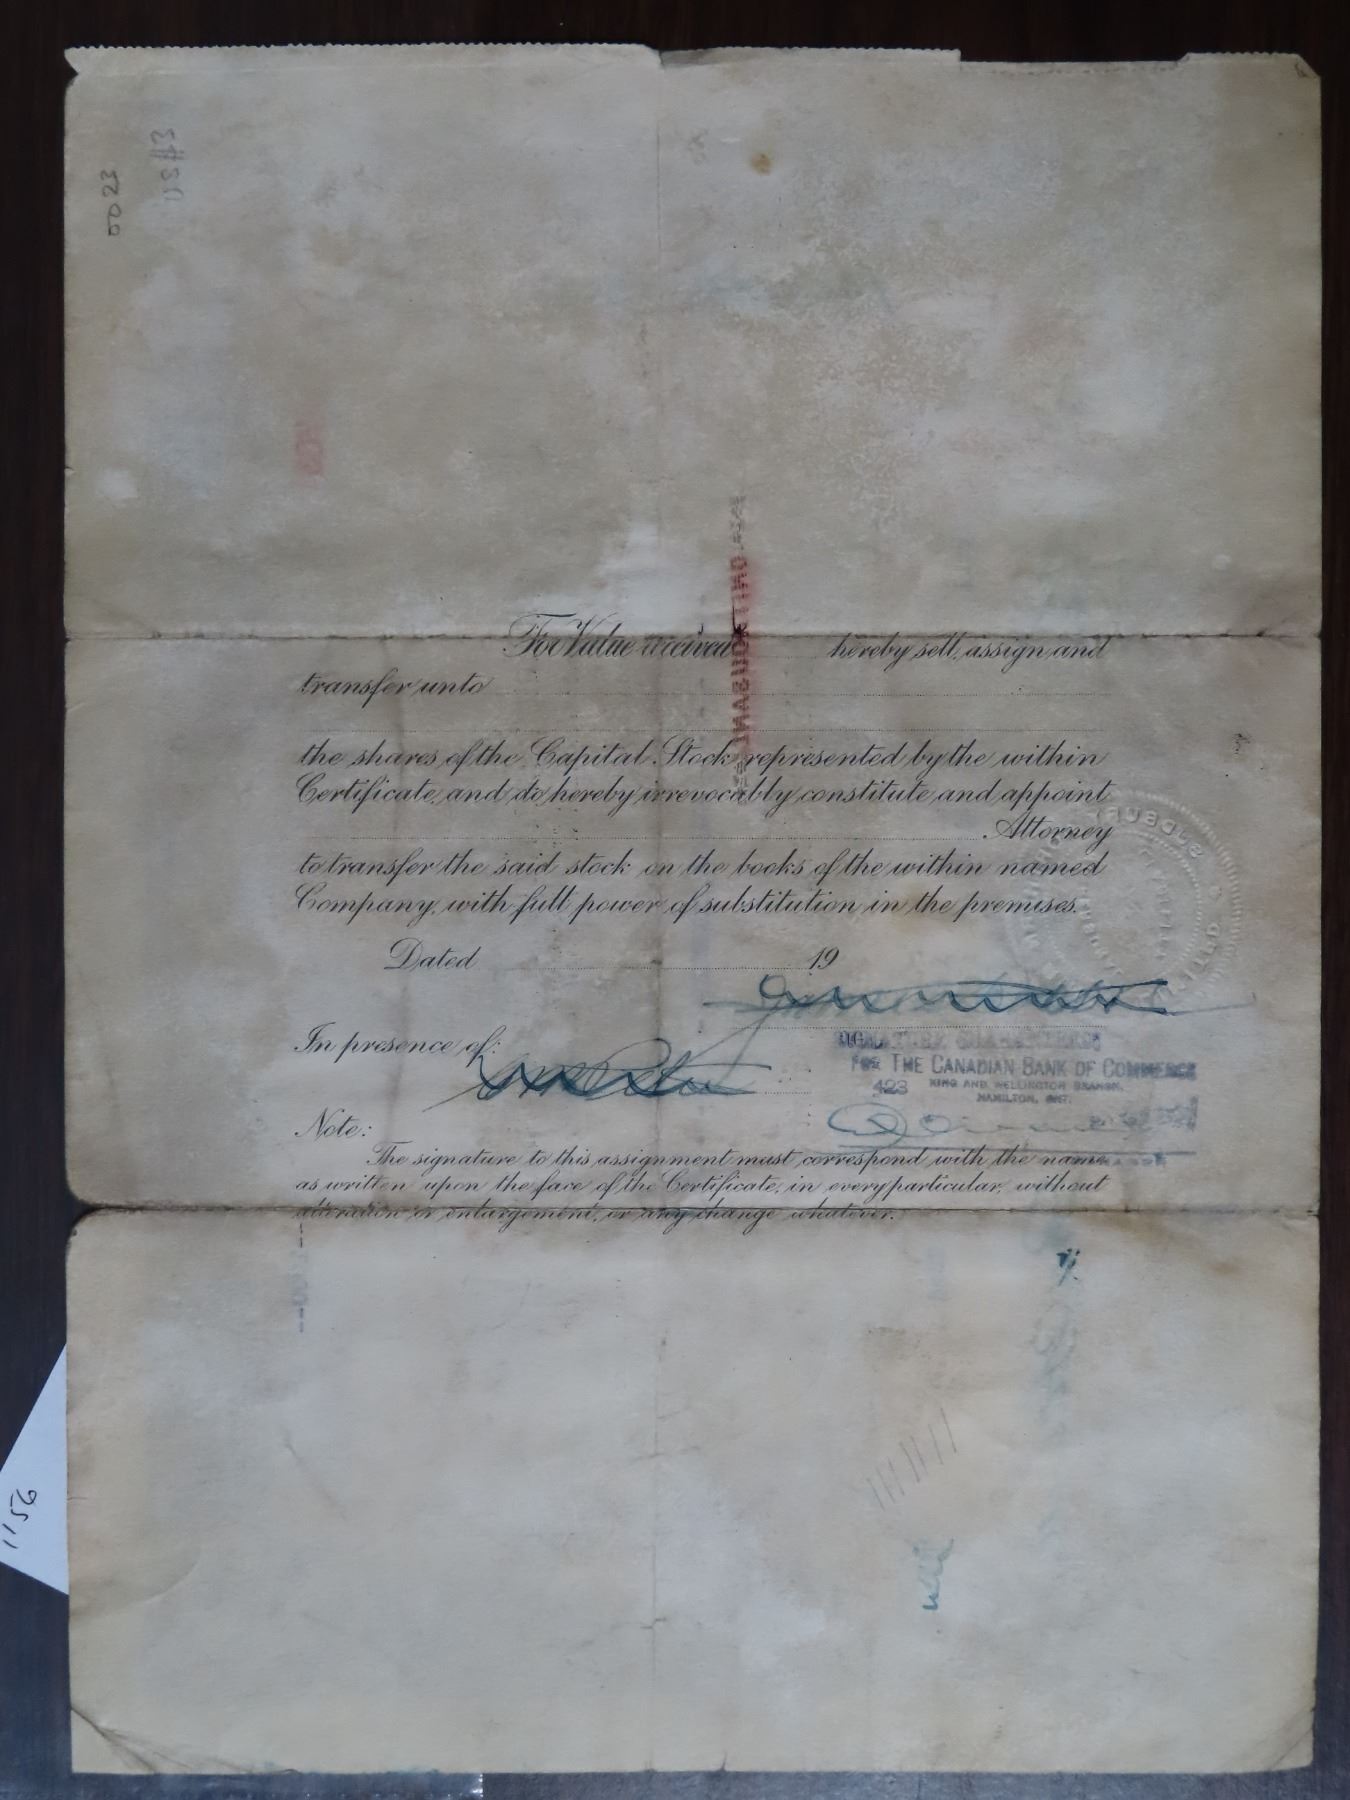 0023
US#3
For Value received hereby sell, assign and
transfer unto
the shares of the Capital Stock represented by the within
Certificate, and do hereby irrevocably constitute and appoint
Attorney
to transfer the said stock on the books of the within named
Company, with full power of substitution in the premises.
Dated 19
In presence of:
SIGNATURE GUARANTEED
FOR THE CANADIAN BANK OF COMMERCE
423 KING AND WELLINGTON BRANCH,
HAMILTON, ONT.
Note:
The signature to this assignment must correspond with the name
as written upon the face of the Certificate, in every particular, without
alteration or enlargement, or any change whatever.
1156